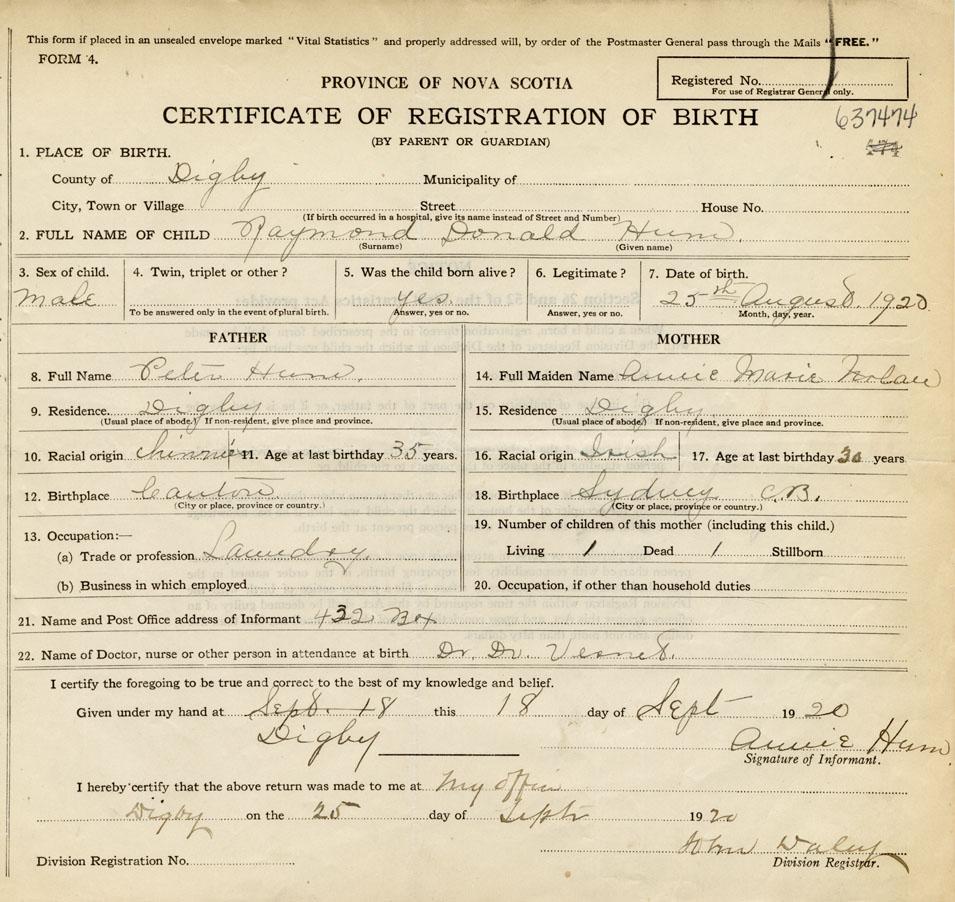 This form if placed in an unsealed envelope marked "Vital Statistics" and properly addressed will, by order of the Postmaster General pass through the Mails "FREE."
FORM 4.
Registered No.
For use of Registrar General only.
PROVINCE OF NOVA SCOTIA
CERTIFICATE OF REGISTRATION OF BIRTH
637474
(BY PARENT OR GUARDIAN)
1. PLACE OF BIRTH.
County of Digby Municipality of
City, Town or Village Street House No.
(If birth occurred in a hospital, give its name instead of Street and Number)
2. FULL NAME OF CHILD Raymond Donald Hum.
(Surname) (Given name)
3. Sex of child. 4. Twin, triplet or other? 5. Was the child born alive? 6. Legitimate? 7. Date of birth.
Male yes. 25th August. 1920
To be answered only in the event of plural birth. Answer, yes or no. Answer, yes or no. Month, day, year.
FATHER MOTHER
8. Full Name Peter Hum. 14. Full Maiden Name Annie Marie Nolan
9. Residence. Digby 15. Residence Digby
(Usual place of abode.) If non-resident, give place and province. (Usual place of abode.) If non-resident, give place and province.
10. Racial origin 11. Age at last birthday 35 years. 16. Racial origin Irish 17. Age at last birthday years.
12. Birthplace Canton. 18. Birthplace Sydney C.B.
(City or place, province or country.) (City or place, province or country.)
13. Occupation:— 19. Number of children of this mother (including this child.)
(a) Trade or profession Laundry Living 1 Dead 1 Stillborn
(b) Business in which employed 20. Occupation, if other than household duties
21. Name and Post Office address of Informant 432 Box
22. Name of Doctor, nurse or other person in attendance at birth Dr. Dv.
I certify the foregoing to be true and correct to the best of my knowledge and belief.
Given under my hand at Sept. 18 this 18 day of Sept 1920
Digby Annie Hum
Signature of Informant.
I hereby certify that the above return was made to me at My office
Digby on the 25 day of Sept 1920
John Daley
Division Registrar.
Division Registration No.